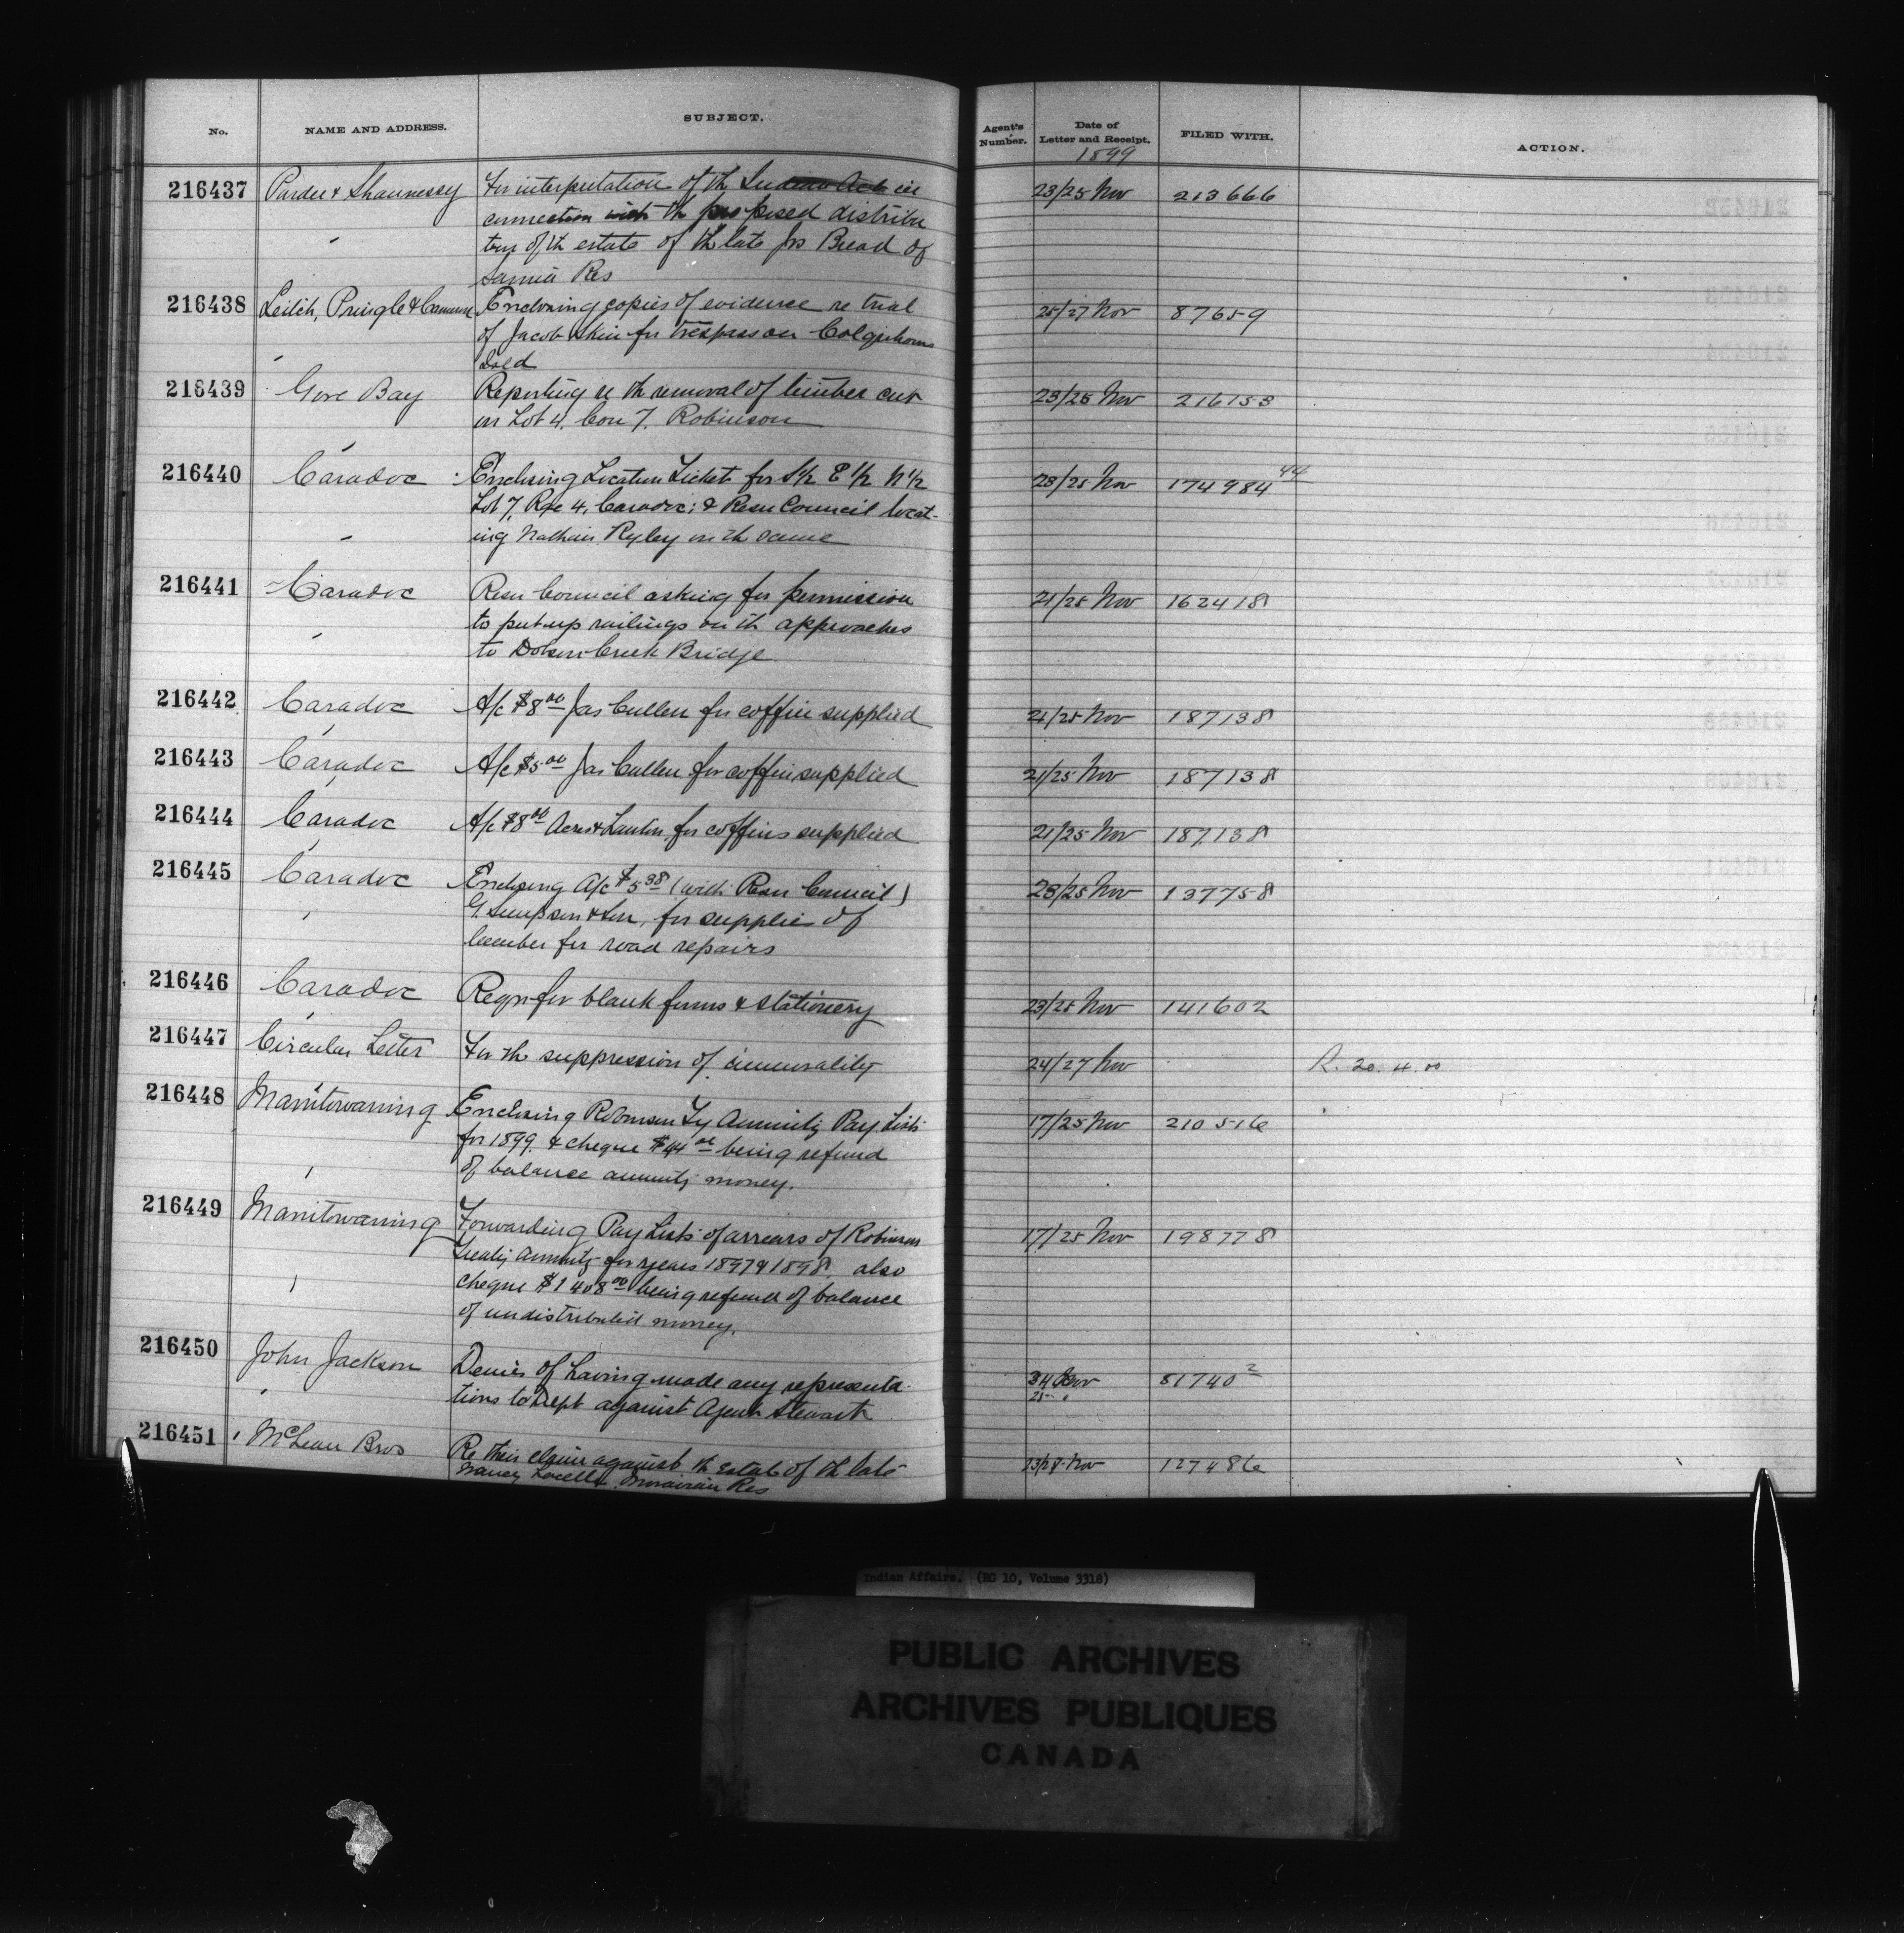 No. NAME AND ADDRESS. SUBJECT. Agent's Number. Date of Letter and Receipt. FILED WITH. ACTION.
1899
216437 Pardee & Shaunessy For interpretation of th Indian Act in 23/25 Nov 213666
connection with th proposed distribu
tion of th estate of th late Jos Bread of
Sarnia Res
216438 Leitch, Pringle & Cameron Enclosing copies of evidence re trial 25/27 Nov 87659
of Jacob Skin for trespass on Colquhouns
Isld
216439 Gore Bay Reporting re th removal of timber cut 23/25 Nov 216153
on Lot 4, Con 7, Robinson
216440 Caradoc Enclosing Location Ticket for S½ E½ N½ 23/25 Nov 174984 44
Lot 7, Rge 4, Caradoc; & Resn Council locat-
ing Nathan Ryley on th same
216441 Caradoc Resn Council asking for permission 21/25 Nov 162418
to put up railings on th approaches
to Creek Bridge
216442 Caradoc A/c $8 00 Jas Cullen for coffin supplied 21/25 Nov 187138
216443 Caradoc A/c $5 00 Jas Cullen for coffin supplied 21/25 Nov 187138
216444 Caradoc A/c $8 00 for coffins supplied 21/25 Nov 187138
216445 Caradoc Enclosing A/c $5 38 (with Resn Council) 23/25 Nov 137758
G. Simpson & Son, for supplies of
lumber for road repairs
216446 Caradoc Reqn for blank forms & stationery 23/25 Nov 141602
216447 Circular Letter For th suppression of immorality 24/27 Nov R. 20.4.00
216448 Manitowaning Enclosing Robinson Ty Annuity Pay Lists 17/25 Nov 210516
for 1899. & cheque $44 00 being refund
of balance annuity money.
216449 Manitowaning Forwarding Pay Lists of arrears of Robinson 17/25 Nov 198778
Treaty Annuity for years 1897 & 1898, also
cheque $1408 00 being refund of balance
of undistributed money.
216450 John Jackson Denies of having made any representa- 24 Nov 81740 2
tions to Dept against Agent Stewart 25
216451 McLean Bros Re their claim against th estate of th late 23/28 Nov 127486
Nancy Moravian Res
Indian Affairs. (RG 10, Volume 3318)
PUBLIC ARCHIVES
ARCHIVES PUBLIQUES
CANADA